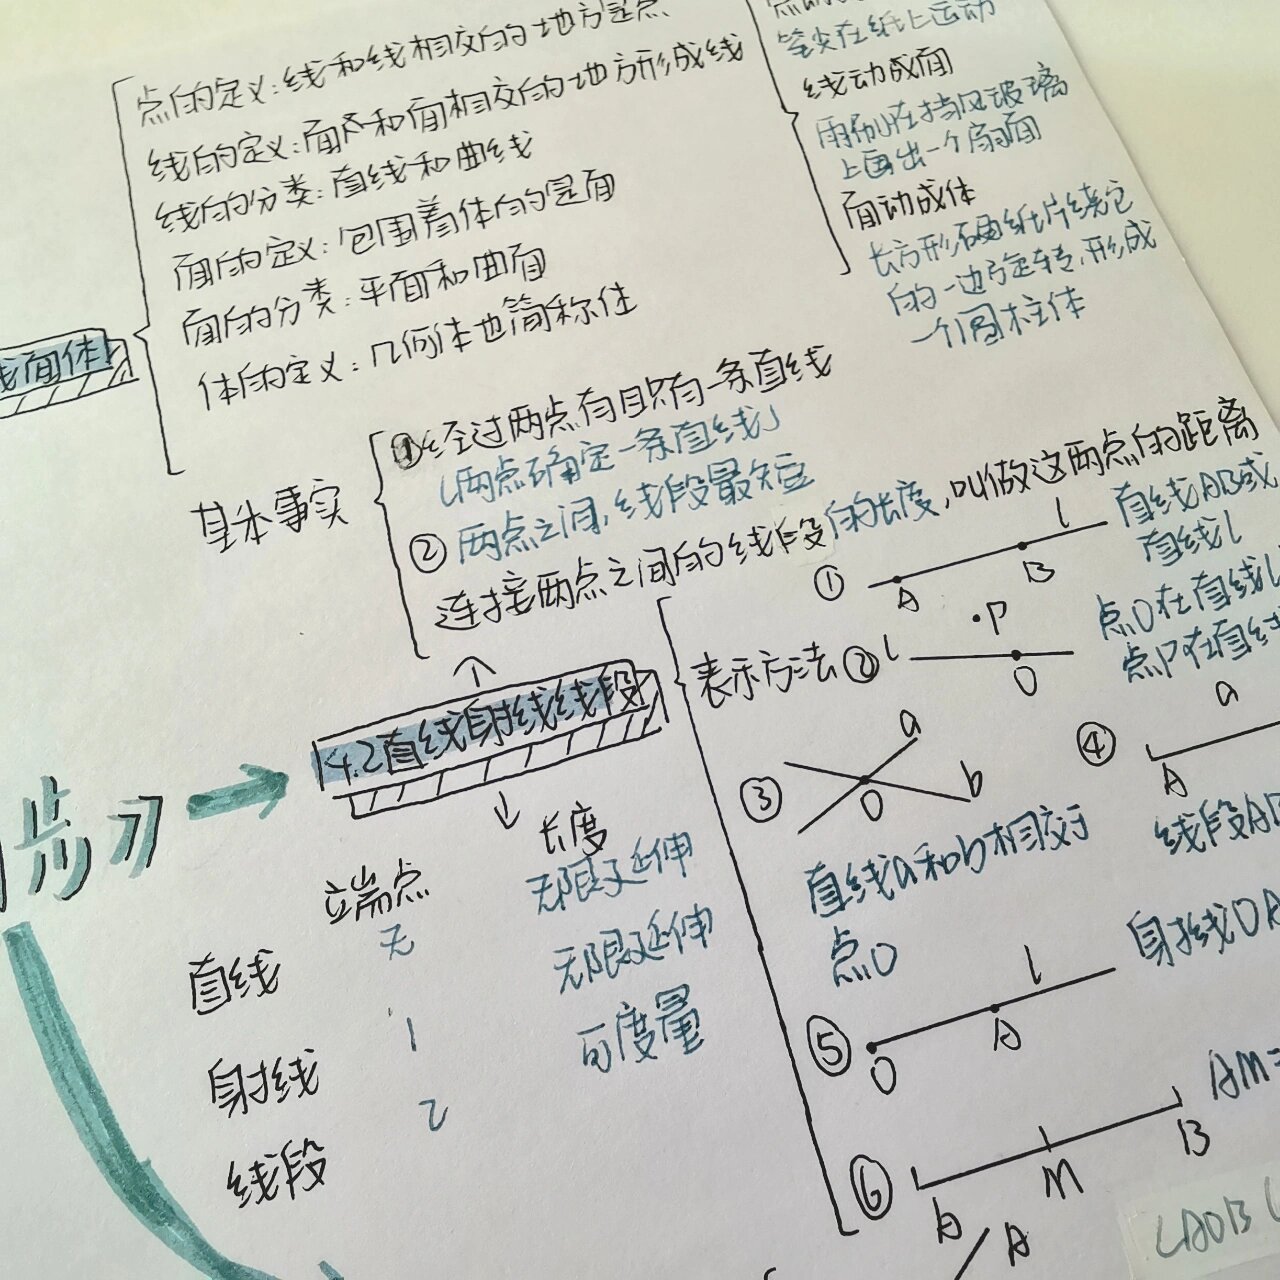 点的定义:线和线相交的地方是点
线的定义:面和面相交的地方形成线
线的分类:直线和曲线
面的定义:包围着体的是面
面的分类:平面和曲面
体的定义:几何体也简称体
线面体
笔尖在纸上运动
线动成面
雨刷在挡风玻璃
上画出一个扇面
面动成体
长方形硬纸片绕它
的一边旋转,形成
一个圆柱体
基本事实
①经过两点有且只有一条直线
(两点确定一条直线)
②两点之间,线段最短
连接两点之间的线段的长度,叫做这两点的距离
4.2直线射线线段
步
端点 长度
直线 无 无限延伸
射线 1 无限延伸
线段 2 可度量
表示方法
① A B l
直线AB或
直线l
② l O ·P
点O在直线l
点P在直线
③ a b O
直线a和b相交于
点O
④ A a
线段AB
⑤ O A l
射线OA
⑥ A M B
AM=
A
∠AOB